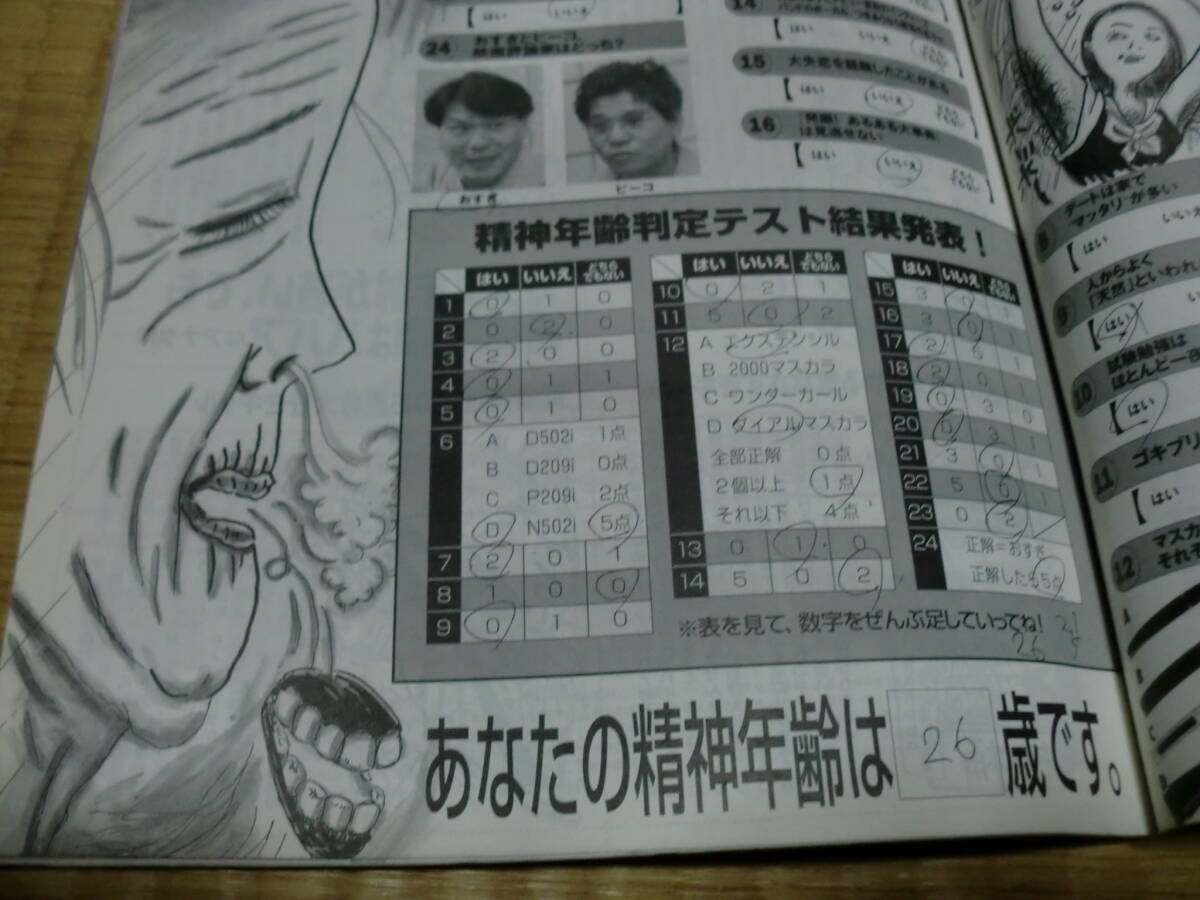 【 はい いいえ
24 おすぎとピーコ、
映画評論家はどっち?
おすぎ
ピーコ
14
はい いいえ
15 大失恋を経験したことがある
【 はい いいえ どちらでもない】
16 発掘!あるある大事典
は見逃せない
【 はい いいえ どちらでもない】
精神年齢判定テスト結果発表!
はい いいえ どちらでもない
1 0 1 0
2 0 2 0
3 2 0 0
4 0 1 1
5 0 1 0
6 A D502i 1点
B D209i 0点
C P209i 2点
D N502i 5点
7 2 0 1
8 1 0 0
9 0 1 0
はい いいえ どちらでもない
10 0 2 1
11 5 0 2
12 A エクステンシル
B 2000マスカラ
C ワンダーカール
D ダイアルマスカラ
全部正解 0点
2個以上 1点
それ以下 4点
13 0 1 0
14 5 0 2
はい いいえ
15 3 0
16 3 0
17 2 1
18 2 0 1
19 0 3 0
20 0 3 1
21 3 0 1
22 5 0
23 0 2
24 正解=おすぎ
正解したら5点
※表を見て、数字をぜんぶ足していってね!
26
あなたの精神年齢は 26 歳です。
8 デートは家で
"マッタリ"が多い
【 はい いいえ
9 人からよく
「天然」といわれ
【 はい いい
10 試験勉強は
ほとんど一夜
【 はい
11 ゴキブリ
【 はい
12 マスカ
それぞ
A
B
C
D